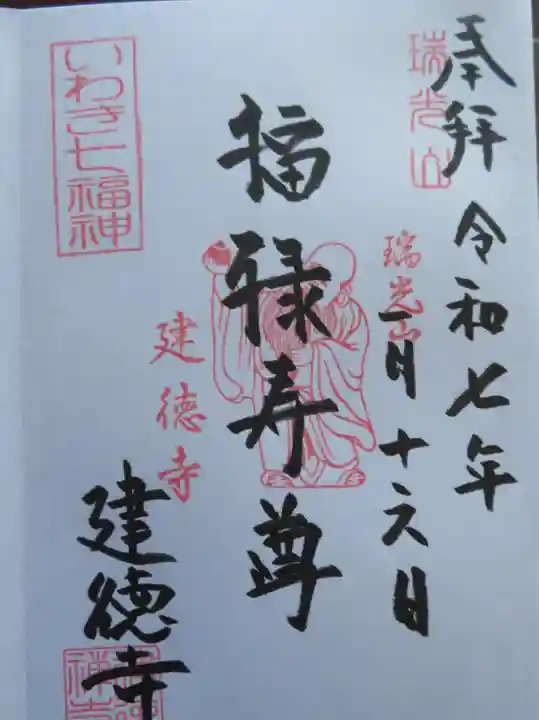 奉拝
瑞光山
令和七年
瑞光山
一月十六日
福禄寿尊
建徳寺
いわき七福神
建徳寺